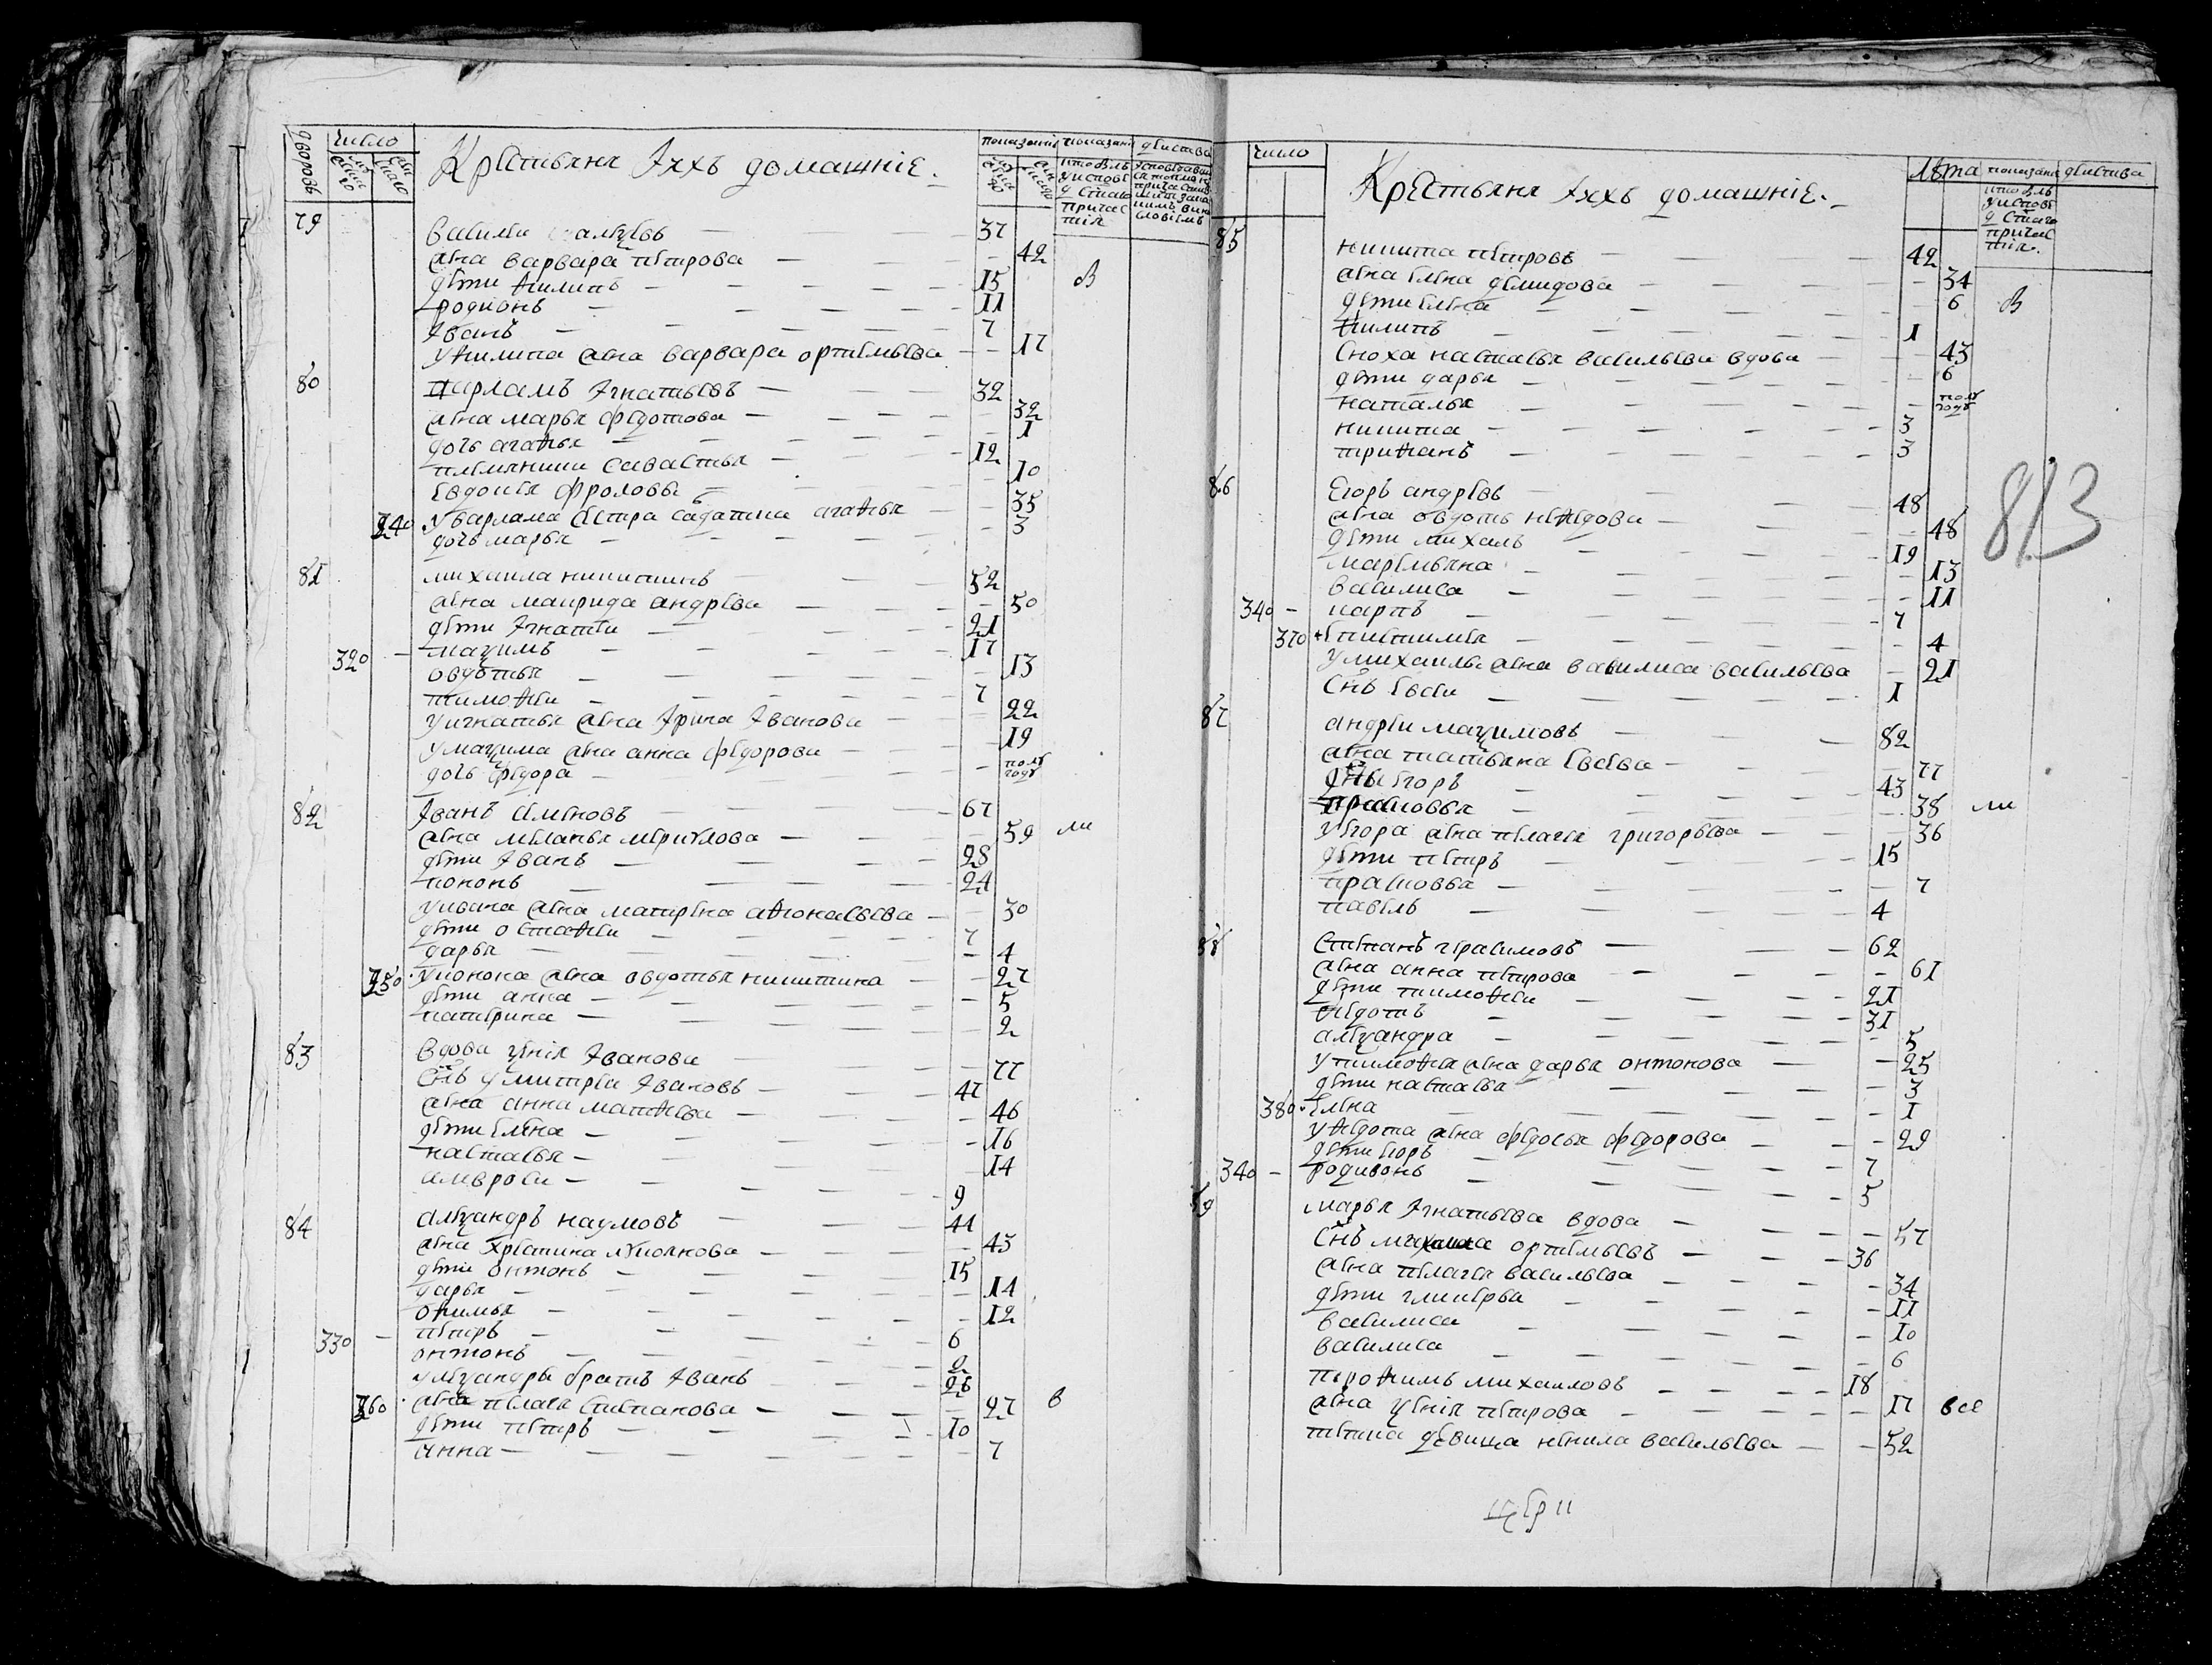 дворовъ
число
Крестьяня Ихъ домашніе.
показаніе
показаніе
действа
79 василей 37
жена варвара петрова 42
дети филипъ 15 в
родионъ 11
Иванъ 7
у филипа жена варвара ортемьева 17
80 варламъ Игнатьевъ 32
жена марья федотова 32
дочь агафья 1
племянники савастья 12
евдокея фролова 10
340 у варлама сестра салдатка агафья 35
дочь марья 3
81 михаила никитинъ 52
жена маврида андреева 50
дети Игнатей 21
320 мазимъ 17
овдотья 13
тимофеи 7
у игнатья жена Ирина Иванова 22
у мазима жена анна федорова 19
дочь федора полъ годъ
82 Иванъ семеновъ 67
жена меланья меркулова 59 ли
дети Иванъ 28
кононъ 24
у ивана жена матрена афонасьева 30
дети остафеи 7
дарья 4
350 у конона жена овдотья никитина 27
дети анна 5
катерина 2
83 вдова ксения Иванова 77
снъ дмитреи Ивановъ 47
жена анна матфеева 46
дети елена 16
настасья 14
амвросеи 9
84 алезандръ наумовъ 44
жена хрестина лукоянова 43
дети онтонъ 15
дарья 14
офимья 12
330 петръ 6
онтонъ 2
у алезандры братъ Иванъ 26
360 жена пелагея степанова 27 в
дети петръ 10
анна 7
число
Крестьяня Ихъ домашніе.
лѣта
показаніе
действа
85 никита петровъ 42
жена елена демидова 34
дети елена 6 в
филипъ 1
сноха настасья васильева вдова 43
дети дарья 6
наталья полъ годъ
никита 3
трифанъ 3
813
86 егоръ андреевъ 48
жена овдотья нефедова 48
дети михаилъ 19
маремьяна 13
василиса 11
340 карпъ 7
370 епистимея 4
у михаила жена василиса васильева 21
снъ евсеи 1
87 андреи мазимовъ 82
жена татьяна евсева 77
егоръ 43
прасковья 38 ли
у егора жена пелагея григорьева 36
дети петръ 15
прасковья 7
павелъ 4
88 степанъ герасимовъ 62
жена анна петрова 61
дети тимофеи 21
федотъ 31
алезандра 5
у тимофея жена дарья онтонова 25
дети настасья 3
380 елена 1
у федота жена федосья федорова 29
дети егоръ 7
340 родивонъ 5
59 марья Игнатьева вдова 57
снъ михаила ортемьевъ 36
жена пелагея васильева 34
дети гликерья 11
василиса 10
василиса 6
порфилъ михаиловъ 18
жена ксения петрова 17 все
тетка девица ненила васильева 52